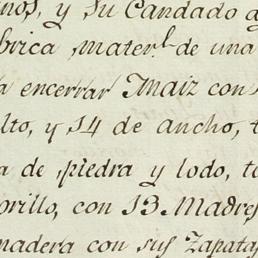 nos, y su Candado
brica mater.l de una
encerrar Maiz con
lto, y 14 de ancho, t
a de piedra y lodo, t
orillo, con 13 Madres
madera con sus Zapata